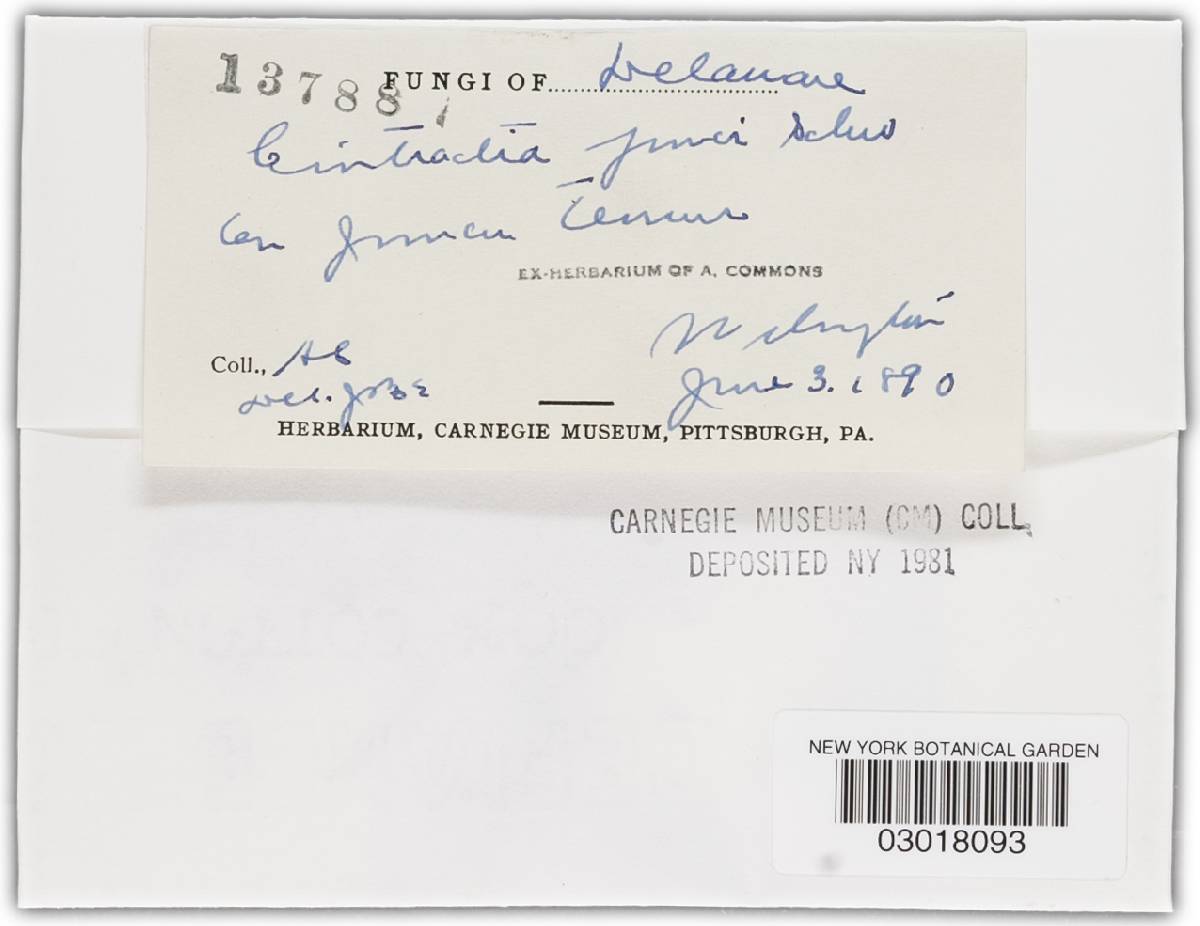 13788 FUNGI OF Delaware
Cintractia junci Schw
on Juncus tenuis
EX-HERBARIUM OF A. COMMONS
Wilmington
Coll., AC
June 3. 1890
Det.
HERBARIUM, CARNEGIE MUSEUM, PITTSBURGH, PA.
CARNEGIE MUSEUM (CM) COLL.
DEPOSITED NY 1981
NEW YORK BOTANICAL GARDEN
03018093